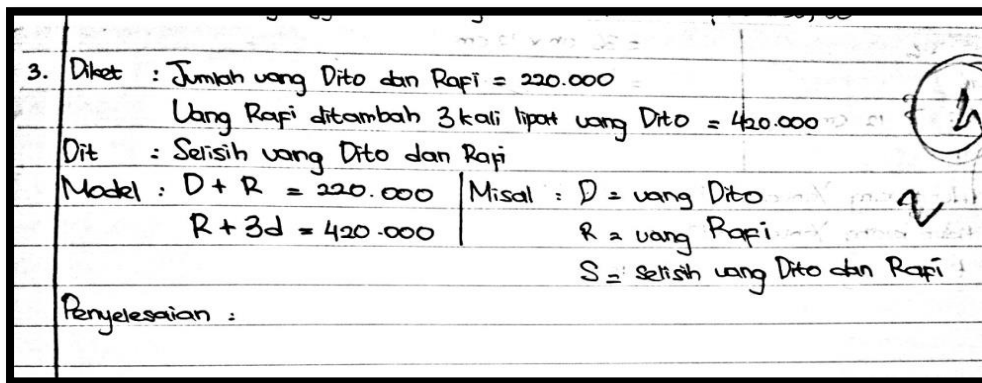 3. Diket : Jumlah uang Dito dan Rafi = 220.000
Uang Rafi ditambah 3 kali lipat uang Dito = 420.000
Dit : Selisih uang Dito dan Rafi
Model : D + R = 220.000 | Misal : D = uang Dito
R + 3d = 420.000 R = uang Rafi
2
S = selisih uang Dito dan Rafi
Penyelesaian :